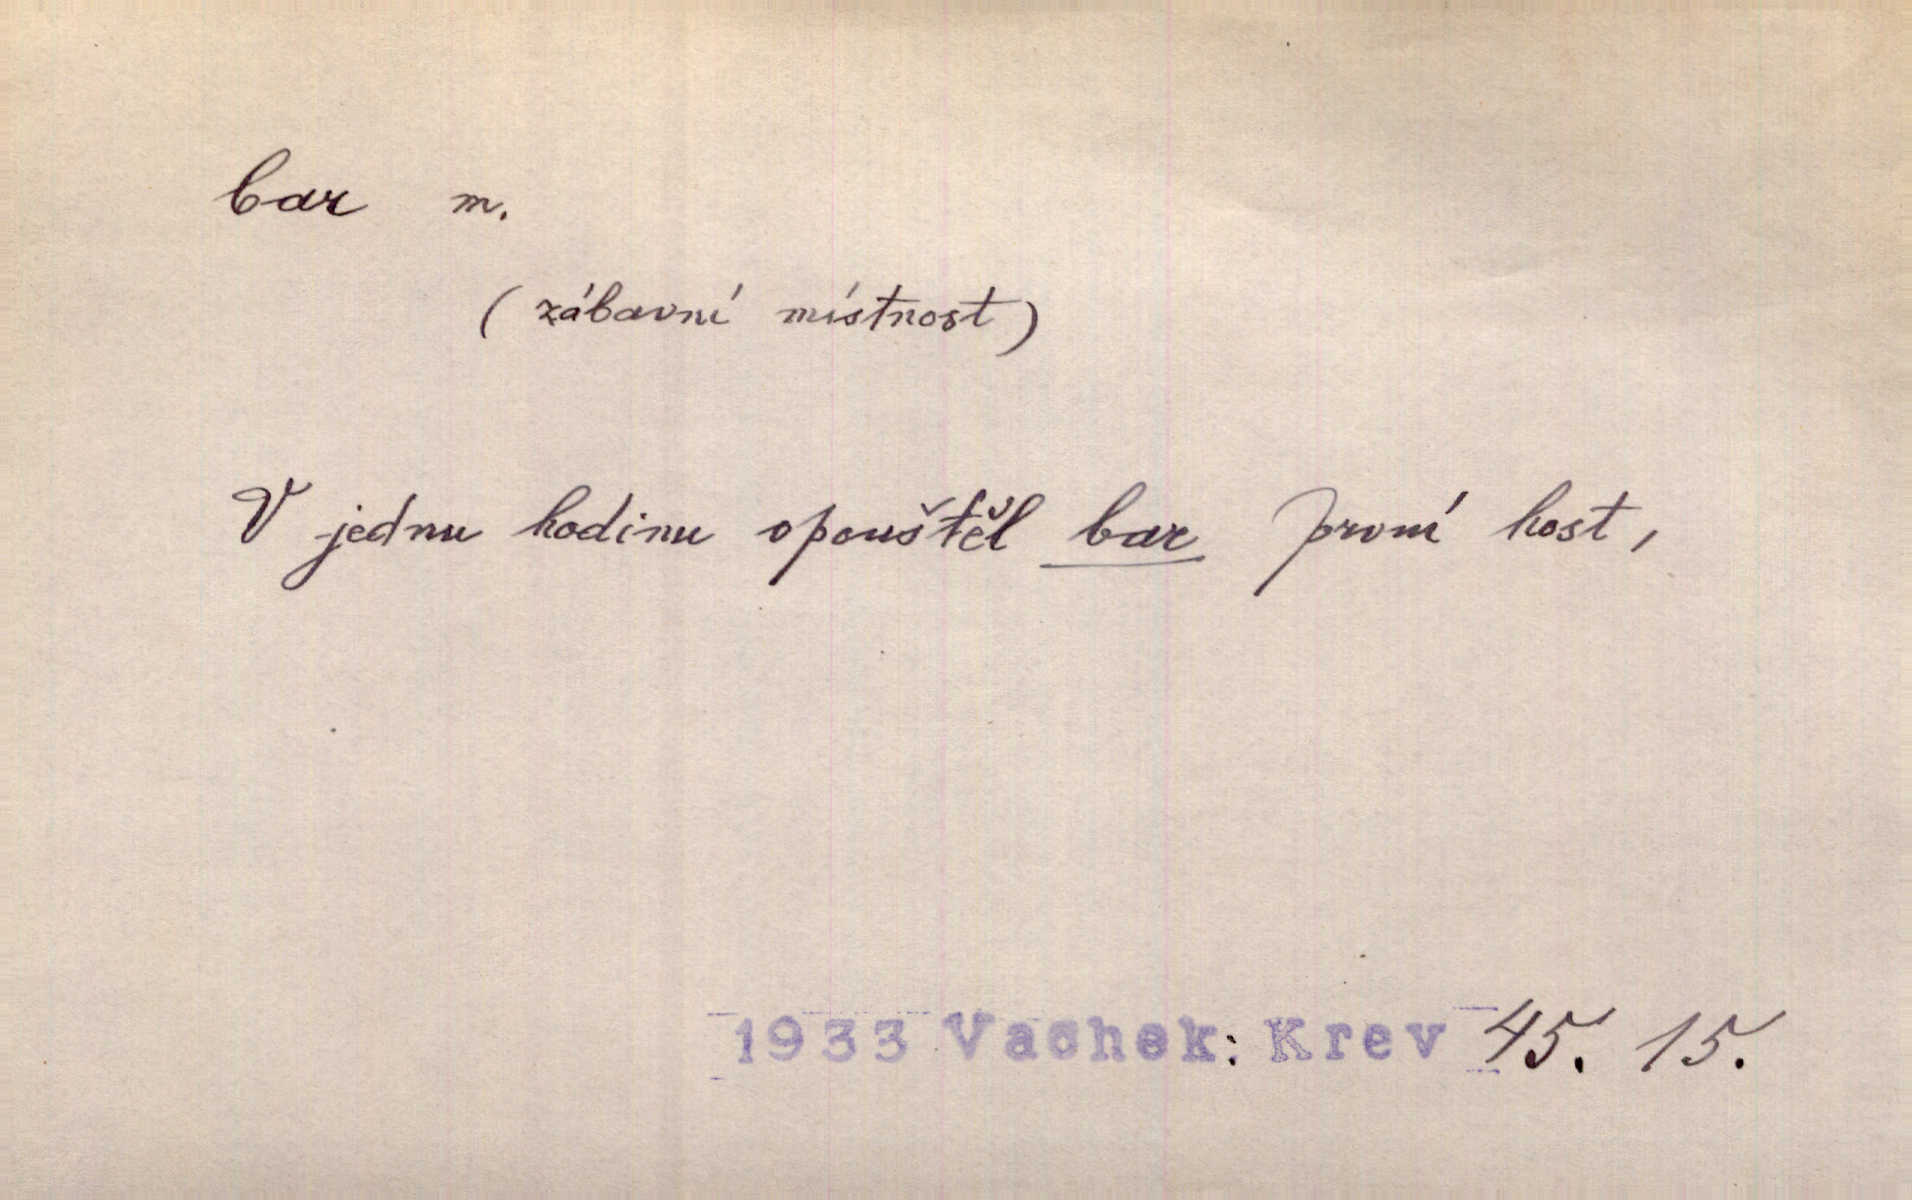 bar m.
(zábavní místnost)
V jednu hodinu opouštěl bar první host,
1933 Vachek: Krev 45. 15.